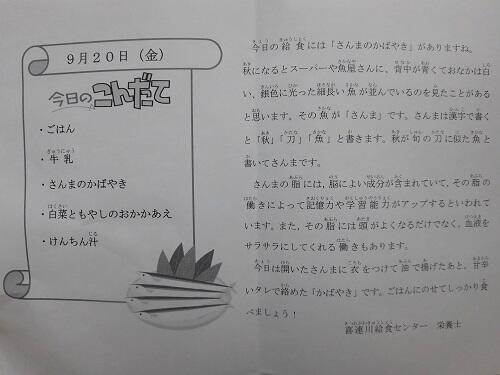 9月20日(金)
今日のこんだて
・ごはん
・牛乳
・さんまのかばやき
・白菜ともやしのおかかあえ
・けんちん汁
今日の給食には「さんまのかばやき」がありますね。
秋になるとスーパーや魚屋さんに、背中が青くておなかは白
い、銀色に光った細長い魚が並んでいるのを見たことがある
と思います。その魚が「さんま」です。さんまは漢字で書く
と「秋」「刀」「魚」と書きます。秋が旬の刀に似た魚と
書いてさんまです。
さんまの脂には、脳によい成分が含まれていて、その脂の
働きによって記憶力や学習能力がアップするといわれて
います。また、その脂には頭がよくなるだけでなく、血液を
サラサラにしてくれる働きもあります。
今日は開いたさんまに衣をつけて油で揚げたあと、甘辛
いタレで絡めた「かばやき」です。ごはんにのせてしっかり食
べましょう!
喜連川給食センター 栄養士